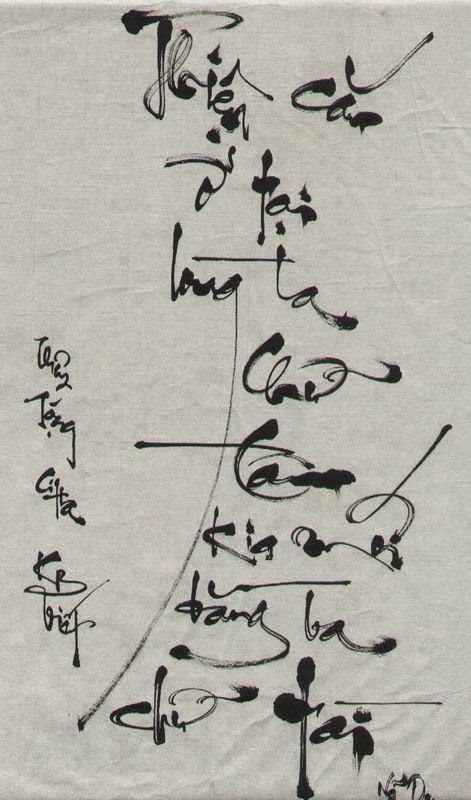 Thiện căn
ở tại
lòng ta
Chữ
Tâm
kia mới
bằng ba
chữ tài
Tặng
KB
viết